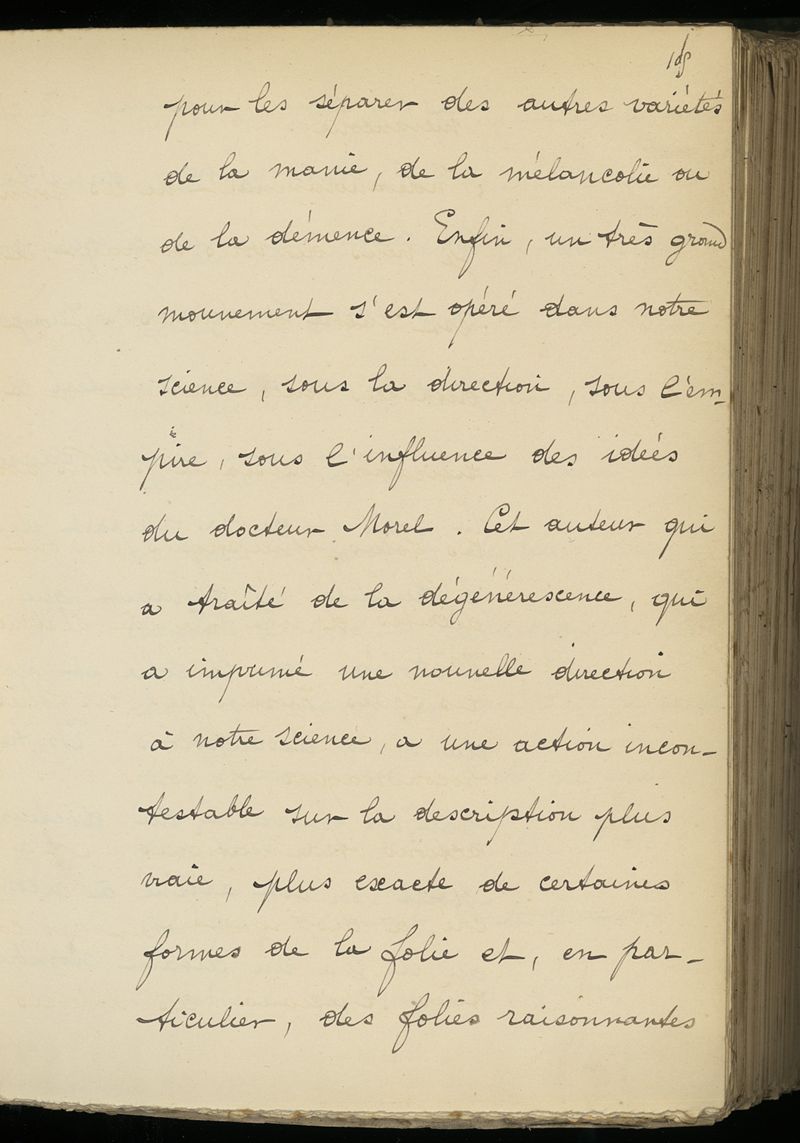 pour les séparer des autres variétés
de la manie, de la mélancolie ou
de la démence. Enfin, un très grand
mouvement s'est opéré dans notre
science, sous la direction, sous l'em-
pire, sous l'influence des idées
du docteur Morel. Cet auteur qui
a traîté de la dégénérescence, qui
a imprimé une nouvelle direction
à notre science, a une action incon-
testable sur la description plus
vraie, plus exacte de certaines
formes de la folie et, en par-
ticulier, des folies raisonnantes